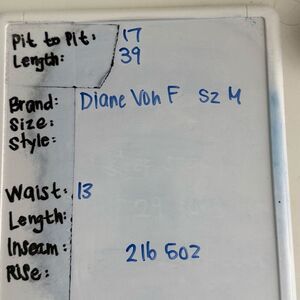 Pit to Pit: 17
Length: 39
Brand: Diane Von F sz M
Size:
Style:
Waist: 13
Length:
Inseam: 2lb 5oz
Rise: